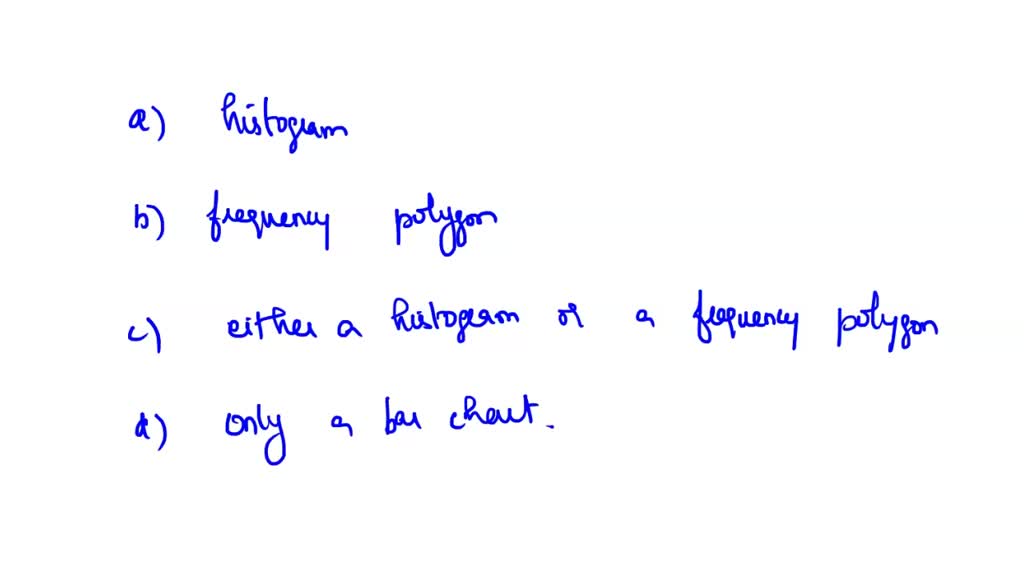 a) histogram
b) frequency polygon
c) either a histogram or a frequency polygon
d) only a bar chart.